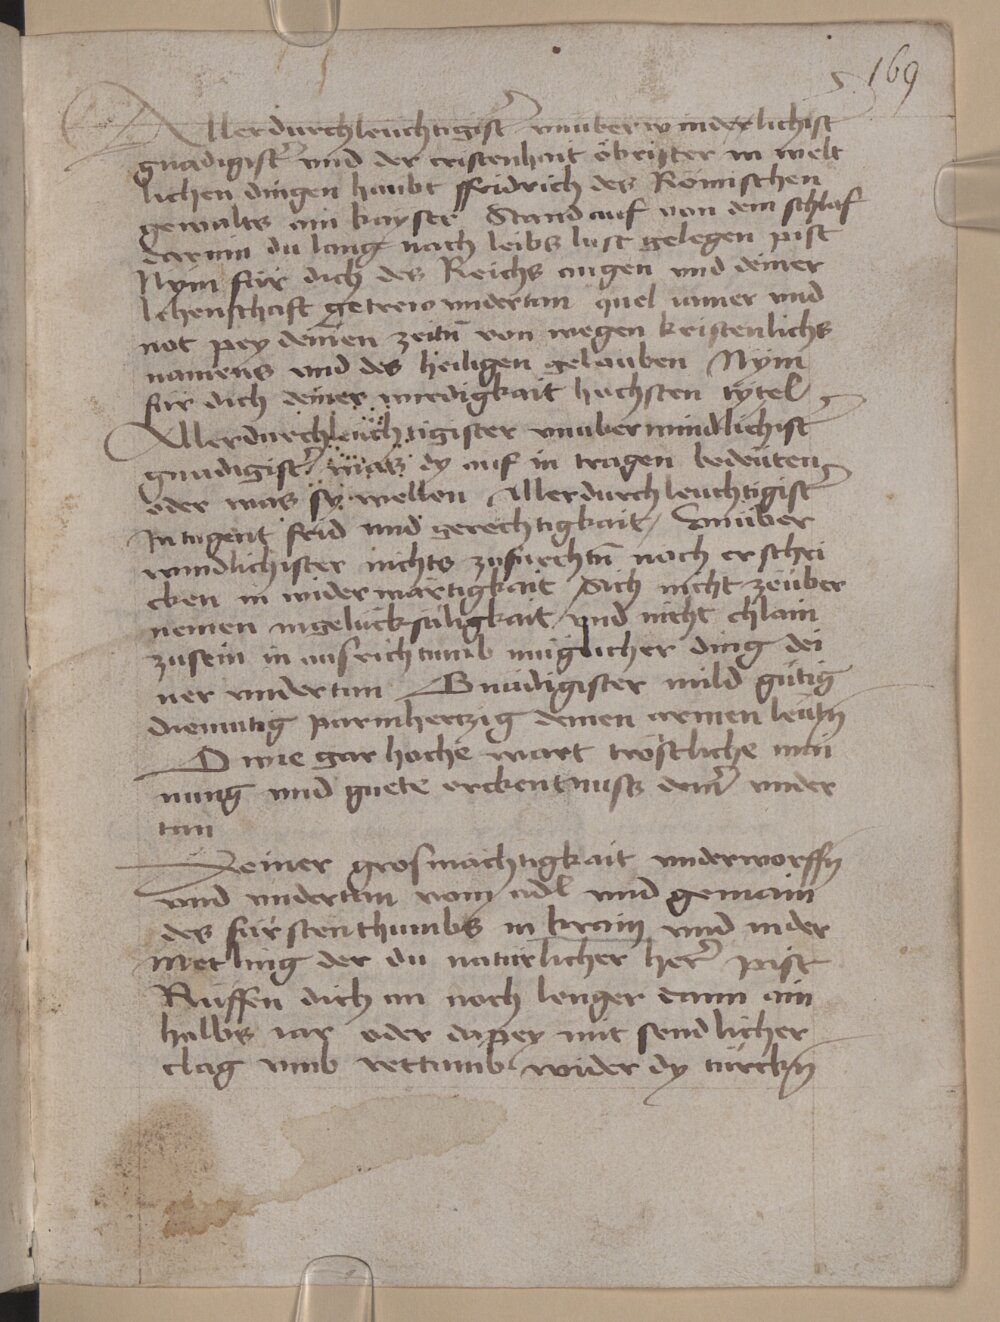 169
Allerdurchleuchtigist unuberwinderlichist
gnadigist und der cristenhait öbrister in welt
lichen dingen haubt ffridrich des Römischen
gewalts ain kayser Stand auf von dem schlaf
darinn du lang nach leibs lust gelegen pist
Nym für dich des Reichs augen und deiner
lehenschaft getrew undertan quel iamer und
not pey deinen zeitn von wegen kristenlichs
namens und des heiligen gelauben Nym
für dich deiner wirdigkait huchsten tytel
Allerdurchleuchtigister unuberwindlichist
gnadigist was dy auf in tragen bedeüten
oder was sy wellen Allerdurchleuchtigist
In tugent frid und gerechtigkait / Unüber
wundlichister nichts zufürchtn noch erschri
cken in widerwärtigkait / Dich nicht zeüber
nemen in gelücksäligkait / und nicht chlain
zusein in aufrichtumb müglicher ding dei
ner undertan Gnädigister mild gütig
diemutig parmhertzig deinen armen leütn
O wie gar hoche wart tröstliche mai
nung und guete erckentnuss deinr under
tan
Deiner grosmächtigkait underworffn
und undertan vom adl und gemain
des fürstenthumbs in krain und in der
Metling der du natürlicher herr pist
Rüffen dich an noch lenger dann ain
halbs iar oder dapey mit sendlicher
clag umb rettumb wider dy türckn